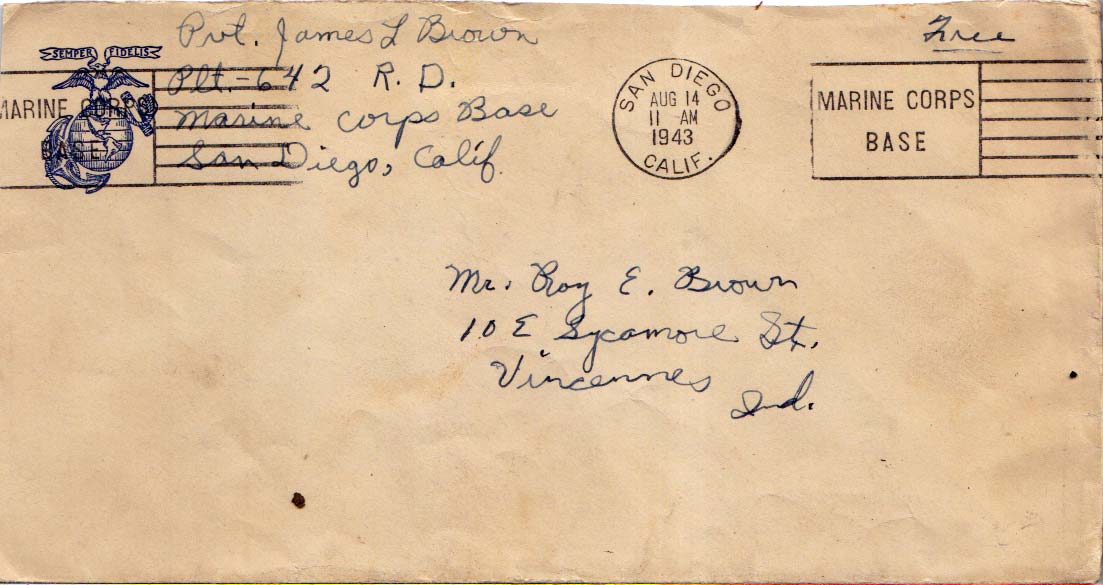 SEMPER FIDELIS
Pvt. James L Brown
Plt.-642 R. D.
Marine Corps Base
San Diego, Calif.
MARINE CORPS
BASE
SAN DIEGO
AUG 14
11 AM
1943
CALIF.
Free
MARINE CORPS
BASE
Mr. Roy E. Brown
10 E Sycamore St.
Vincennes
Ind.